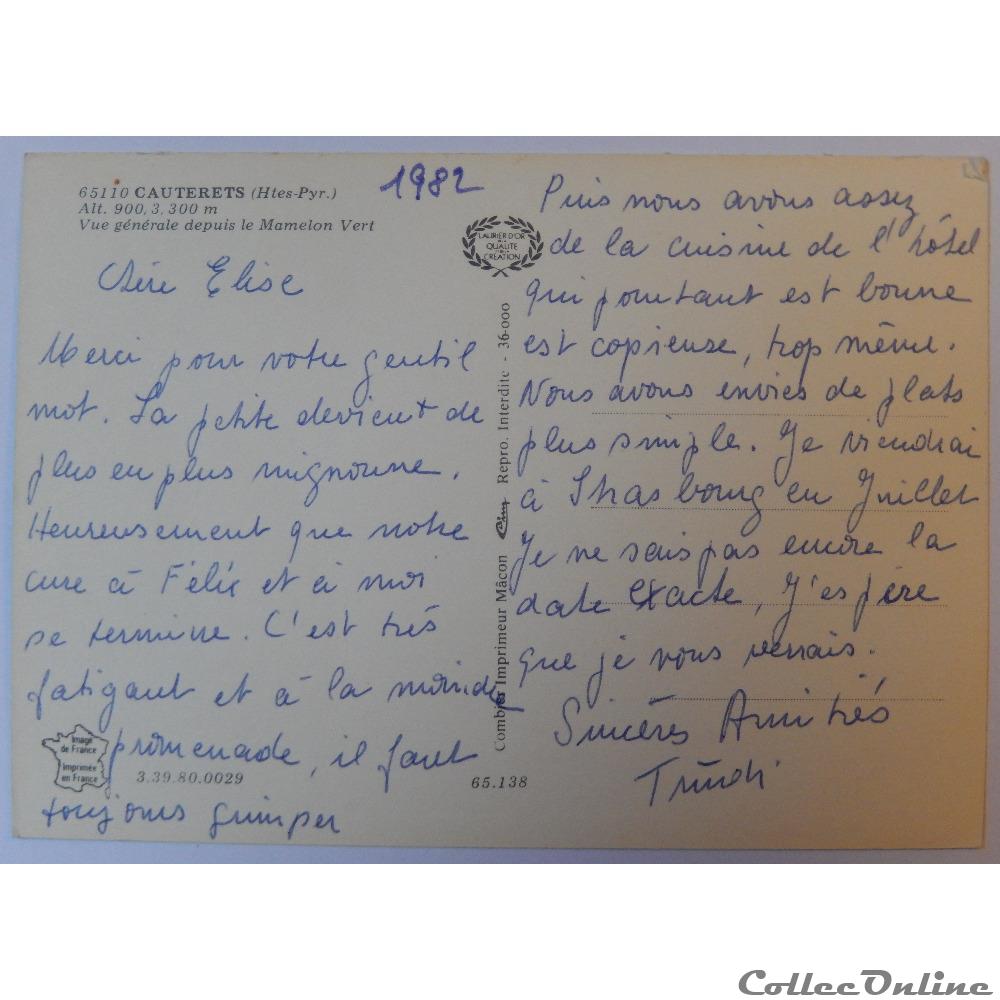 65110 CAUTERETS (Htes-Pyr.)
Alt. 900, 3,300 m
Vue générale depuis le Mamelon Vert
1982
Chère Elise
Merci pour votre gentil
mot. La petite devient de
plus en plus mignonne.
Heureusement que notre
cure à Félix et à moi
se termine. C'est trés
fatigant et à la moindre
promenade, il faut
toujours grimper
Image
de France
Imprimée
en France
3.39.80.0029
65.138
LAURIER D'OR
DE LA
QUALITE
DE LA
CREATION
Combier Imprimeur Mâcon Cim Repro. Interdite - 36-000
Puis nous avons assez
de la cuisine de l'hôtel
qui pourtant est bonne
est copieuse, trop même.
Nous avons envies de plats
plus simple. Je viendrai
à Strasbourg en Juillet
Je ne sais pas encore la
date exacte, J'espère
que je vous verrais.
Sincères Amitiés
Trudi
CollecOnline